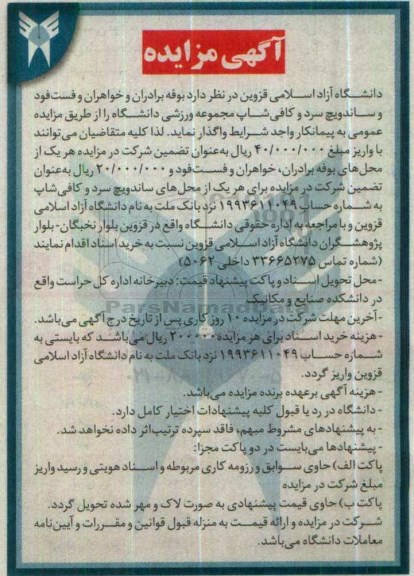 آگهی مزایده
دانشگاه آزاد اسلامی قزوین در نظر دارد بوفه برادران و خواهران و فست‌فود
و ساندویچ سرد و کافی‌شاپ مجموعه ورزشی دانشگاه را از طریق مزایده
عمومی به پیمانکار واجد شرایط واگذار نماید. لذا کلیه متقاضیان می‌توانند
با واریز مبلغ ۴۰/۰۰۰/۰۰۰ ریال به‌عنوان تضمین شرکت در مزایده هر یک از
محل‌های بوفه برادران، خواهران و فست‌فود و ۲۰/۰۰۰/۰۰۰ ریال به‌عنوان
تضمین شرکت در مزایده برای هر یک از محل‌های ساندویچ سرد و کافی‌شاپ
به شماره حساب ۱۹۹۳۶۱۱۰۴۹ نزد بانک ملت به نام دانشگاه آزاد اسلامی
قزوین و با مراجعه به اداره حقوقی دانشگاه واقع در قزوین بلوار نخبگان- بلوار
پژوهشگران دانشگاه آزاد اسلامی قزوین نسبت به خرید اسناد اقدام نمایند
(شماره تماس ۳۳۶۶۵۲۷۵ داخلی ۵۰۶۲)
- محل تحویل اسناد و پاکت پیشنهاد قیمت: دبیرخانه اداره کل حراست واقع
در دانشکده صنایع و مکانیک
- آخرین مهلت شرکت در مزایده ۱۰ روز کاری پس از تاریخ درج آگهی می‌باشد.
- هزینه خرید اسناد برای هر مزایده ۲۰۰۰۰۰ ریال می‌باشد که بایستی به
شماره حساب ۱۹۹۳۶۱۱۰۴۹ نزد بانک ملت به نام دانشگاه آزاد اسلامی
قزوین واریز گردد.
- هزینه آگهی برعهده برنده مزایده می‌باشد.
- دانشگاه در رد یا قبول کلیه پیشنهادات اختیار کامل دارد.
- به پیشنهادهای مشروط مبهم، فاقد سپرده ترتیب‌اثر داده نخواهد شد.
- پیشنهادها می‌بایست در دو پاکت مجزا:
پاکت الف) حاوی سوابق و رزومه کاری مربوطه و اسناد هویتی و رسید واریز
مبلغ شرکت در مزایده
پاکت ب) حاوی قیمت پیشنهادی به صورت لاک و مهر شده تحویل گردد.
شرکت در مزایده و ارائه قیمت به منزله قبول قوانین و مقررات و آیین‌نامه
معاملات دانشگاه می‌باشد.